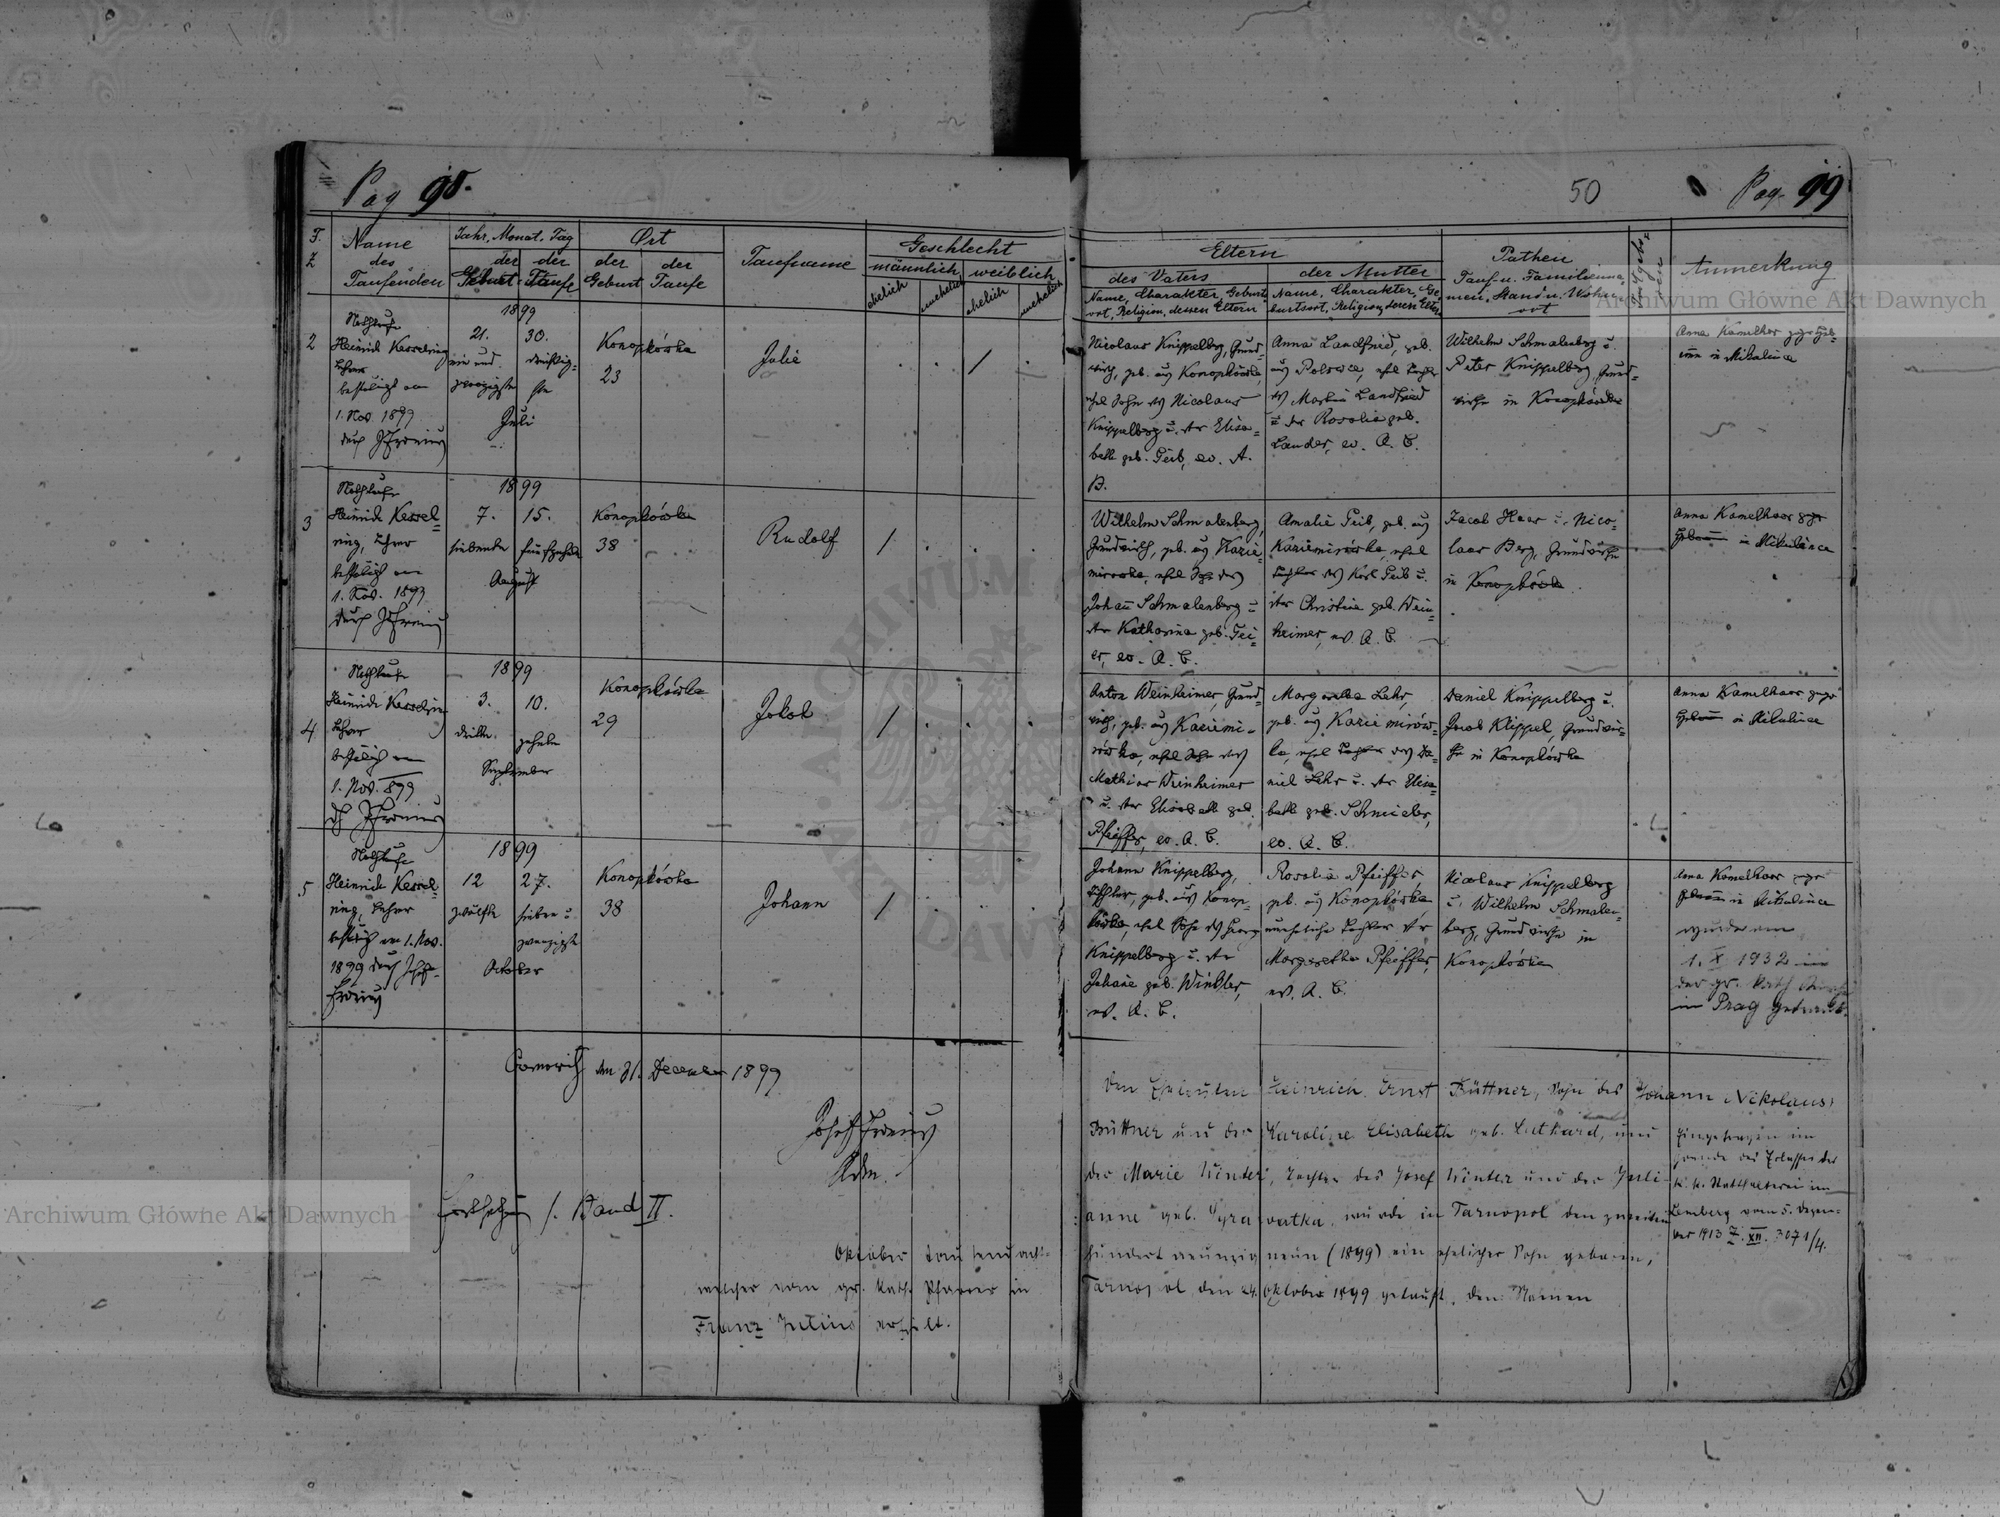 Pag 98.
F. Z
Name
des
Taufenden
Jahr, Monat, Tag
der Geburt
der Taufe
Ort
der Geburt
der Taufe
Taufname
Geschlecht
männlich
weiblich
ehelich
unehelich
ehelich
unehelich
2
Nothtaufe
Heinrich Kesselring
Lehrer
bestätigt am
1. Nov. 1899
durch
1899
21.
30.
ein und
dreißig=
zwanzigste
ste
Juli
Konopkówka
23
Julie
/
3
Nothtaufe
Heinrich Kessel=
ring, Lehrer
bestätigt am
1. Nov. 1899
durch
1899
7.
15.
siebente
fünfzehnte
August
Konopkówka
38
Rudolf
/
4
Nothtaufe
Heinrich Kesselring
Lehrer
bestätigt am
1. Nov. 899
1899
3.
10.
dritte
zehnte
September
Konopkówka
29
Jakob
/
5
Nothtaufe
Heinrich Kessel=
ring, Lehrer
bestätigt am 1. Nov.
1899 durch
1899
12
27.
zwölfte
sieben u.
zwanzigste
October
Konopkówka
38
Johann
/
den 31. December 1899
Josef
Fortsetzung s. Band II.
Oktober tausendacht=
welcher vom gr. kath. Pfarrer in
Franz Julius erhielt.
50
Pag. 99
Eltern
des Vaters
Name, Charakter, Geburts
ort, Religion, dessen Eltern
der Mutter
Name, Charakter, Ge
burtsort, Religion, deren Eltern
Pathen
Tauf- u. Familienna=
men, Stand u. Wohn
ort
Anmerkung
Nicolaus Knippelberg, Grund=
wirth, geb. aus Konopkówka,
ehel. Sohn des Nicolaus
Knippelberg u. der Elisa=
beth geb. Geib, ev. A.
B.
Anna Landfried, geb.
aus Polowce, ehel. Tochter
des Martin Landfried
u. der Rosalia geb.
Lander, ev. A. B.
Wilhelm Schmalenberg u.
Peter Knippelberg, Grund=
wirthe in Konopkówka
Anna Kamelhar
in Mikulince
Wilhelm Schmalenberg,
Grundwirth, geb. aus Kazie
mirowka, ehel. Sohn des
Johann Schmalenberg u.
der Katharina geb. Gei
er, ev. A. B.
Amalie Geib, geb. aus
Kaziemirówka, ehel.
Tochter des Karl Geib u.
der Christine geb. Wein=
heimer, ev. A. B.
Jacob Haas u. Nico=
laus Berg, Grundwirthe
in Konopkówka.
Anna Kamelhaar
in Mikulince
Anton Weinheimer, Grund
wirth, geb. aus Kaziemi=
rówka, ehel. Sohn des
Mathias Weinheimer
u. der Elisabeth geb.
Pfeiffer, ev. A. B.
Margaretha Lehr,
geb. aus Kaziemirów=
ka, ehel. Tochter des Da=
niel Lehr u. der Elisa=
beth geb. Schmieler,
ev. A. B.
Daniel Knippelberg u.
Jacob Klippel, Grundwir=
the in Konopkówka
Anna Kamelhaar
in Mikulince
Johann Knippelberg,
geb. aus Konop=
kówka, ehel. Sohn des Georg
Knippelberg u. der
Juliane geb. Winkler,
ev. A. B.
Rosalia Pfeiffer
geb. aus Konopkówka
uneheliche Tochter der
Margaretha Pfeiffer,
ev. A. B.
Nicolaus Knippelberg
u. Wilhelm Schmalen=
berg, Grundwirthe in
Konopkówka
Anna Kamelhaar
in Mikulince
wurde am
1. X 1932 in
der gr. kath Kirche
in Prag getraut.
Den Eheleuten Heinrich Ernst Büttner, Sohn des Johann Nikolaus
Büttner und der Karoline Elisabeth geb. Luthard, und
der Marie Winter, Tochter des Josef Winter und der Juli
anne geb. wurde in Tarnopol den zweiten
hundert neunzig neun (1899) ein ehelicher Sohn geboren,
Tarnopol den 24. Oktober 1899 getauft, den Namen
Eingetragen im
Grunde des Erlasses der
k. k. Statthalterei in
Lemberg vom 5. Dezem=
ber 1913 Z. XII. 3071/4.
Archiwum Główne Akt Dawnych
Archiwum Główne Akt Dawnych